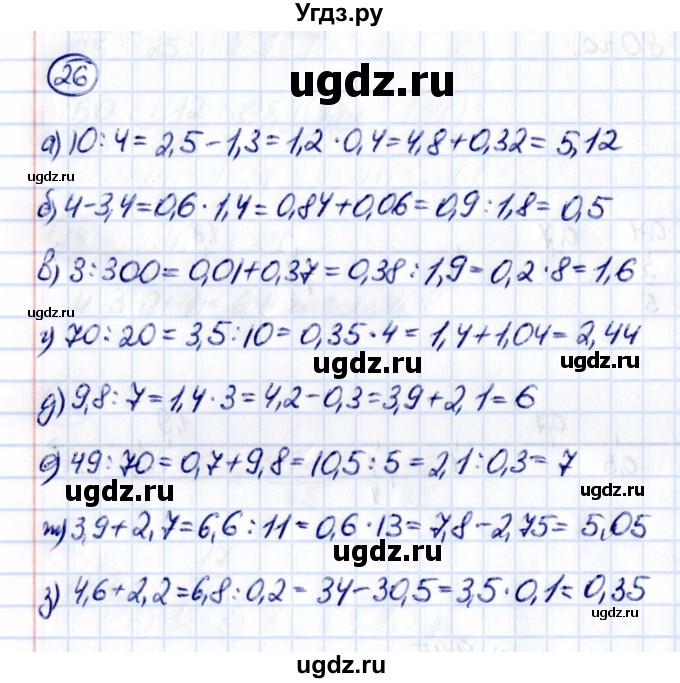 Угдз.ру
26
ugdz.ru
а) 10 : 4 = 2,5 - 1,3 = 1,2 · 0,4 = 4,8 + 0,32 = 5,12
ugdz.ru
б) 4 - 3,4 = 0,6 · 1,4 = 0,84 + 0,06 = 0,9 : 1,8 = 0,5
в) 3 : 300 = 0,01 + 0,37 = 0,38 : 1,9 = 0,2 · 8 = 1,6
ugdz.ru
г) 70 : 20 = 3,5 : 10 = 0,35 · 4 = 1,4 + 1,04 = 2,44
ugdz.ru
д) 9,8 : 7 = 1,4 · 3 = 4,2 - 0,3 = 3,9 + 2,1 = 6
е) 49 : 70 = 0,7 + 9,8 = 10,5 : 5 = 2,1 : 0,3 = 7
ugdz.ru
ugdz.ru
ж) 3,9 + 2,7 = 6,6 : 11 = 0,6 · 13 = 7,8 - 2,75 = 5,05
з) 4,6 + 2,2 = 6,8 : 0,2 = 34 - 30,5 = 3,5 · 0,1 = 0,35
ugdz.ru
ugdz.ru